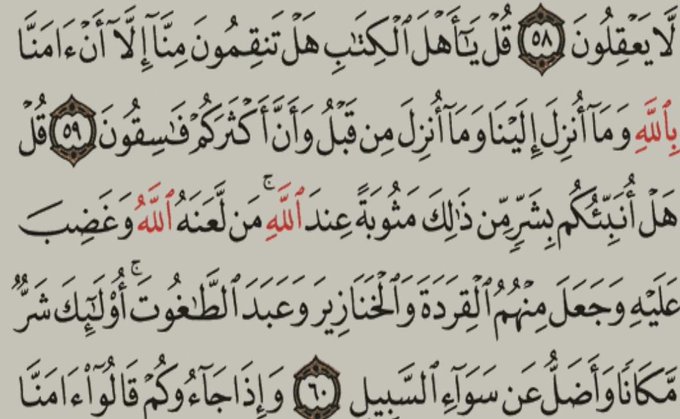 لَّا يَعْقِلُونَ ٥٨ قُلْ يَٰٓأَهْلَ ٱلْكِتَٰبِ هَلْ تَنقِمُونَ مِنَّآ إِلَّآ أَنْ ءَامَنَّا
بِٱللَّهِ وَمَآ أُنزِلَ إِلَيْنَا وَمَآ أُنزِلَ مِن قَبْلُ وَأَنَّ أَكْثَرَكُمْ فَٰسِقُونَ ٥٩ قُلْ
هَلْ أُنَبِّئُكُم بِشَرٍّ مِّن ذَٰلِكَ مَثُوبَةً عِندَ ٱللَّهِ ۚ مَن لَّعَنَهُ ٱللَّهُ وَغَضِبَ
عَلَيْهِ وَجَعَلَ مِنْهُمُ ٱلْقِرَدَةَ وَٱلْخَنَازِيرَ وَعَبَدَ ٱلطَّٰغُوتَ ۚ أُو۟لَٰٓئِكَ شَرٌّ
مَّكَانًا وَأَضَلُّ عَن سَوَآءِ ٱلسَّبِيلِ ٦٠ وَإِذَا جَآءُوكُمْ قَالُوٓا۟ ءَامَنَّا